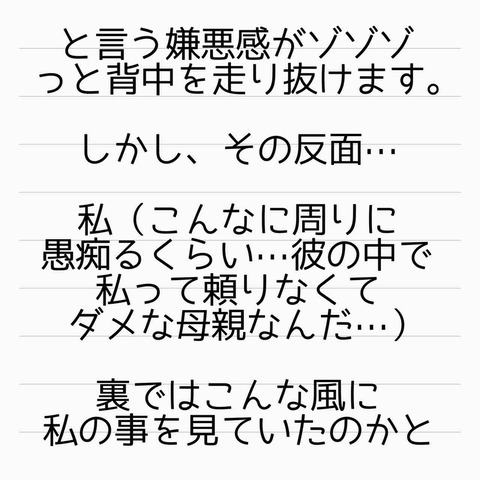 と言う嫌悪感がゾゾゾ
っと背中を走り抜けます。
しかし、その反面…
私（こんなに周りに
愚痴るくらい…彼の中で
私って頼りなくて
ダメな母親なんだ…）
裏ではこんな風に
私の事を見ていたのかと